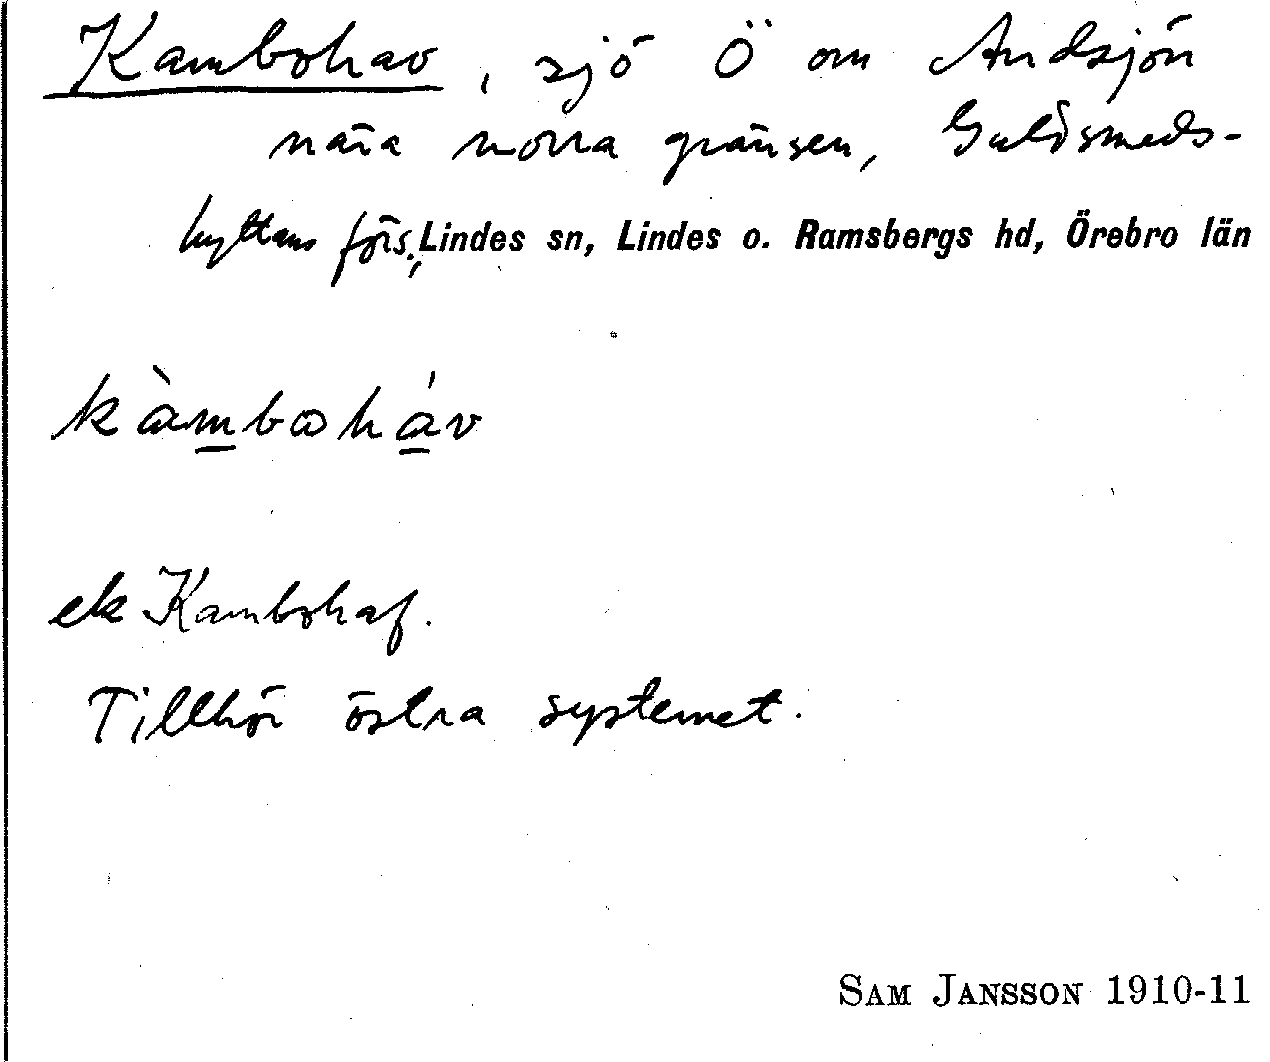 Kambohav, sjö Ö om Andsjön
nära norra gränsen, Guldsmeds-
hyttans förs., Lindes sn, Lindes o. Ramsbergs hd, Örebro län
kàmboháv
ek Kambohaf.
Tillhör östra systemet.
SAM JANSSON 1910-11